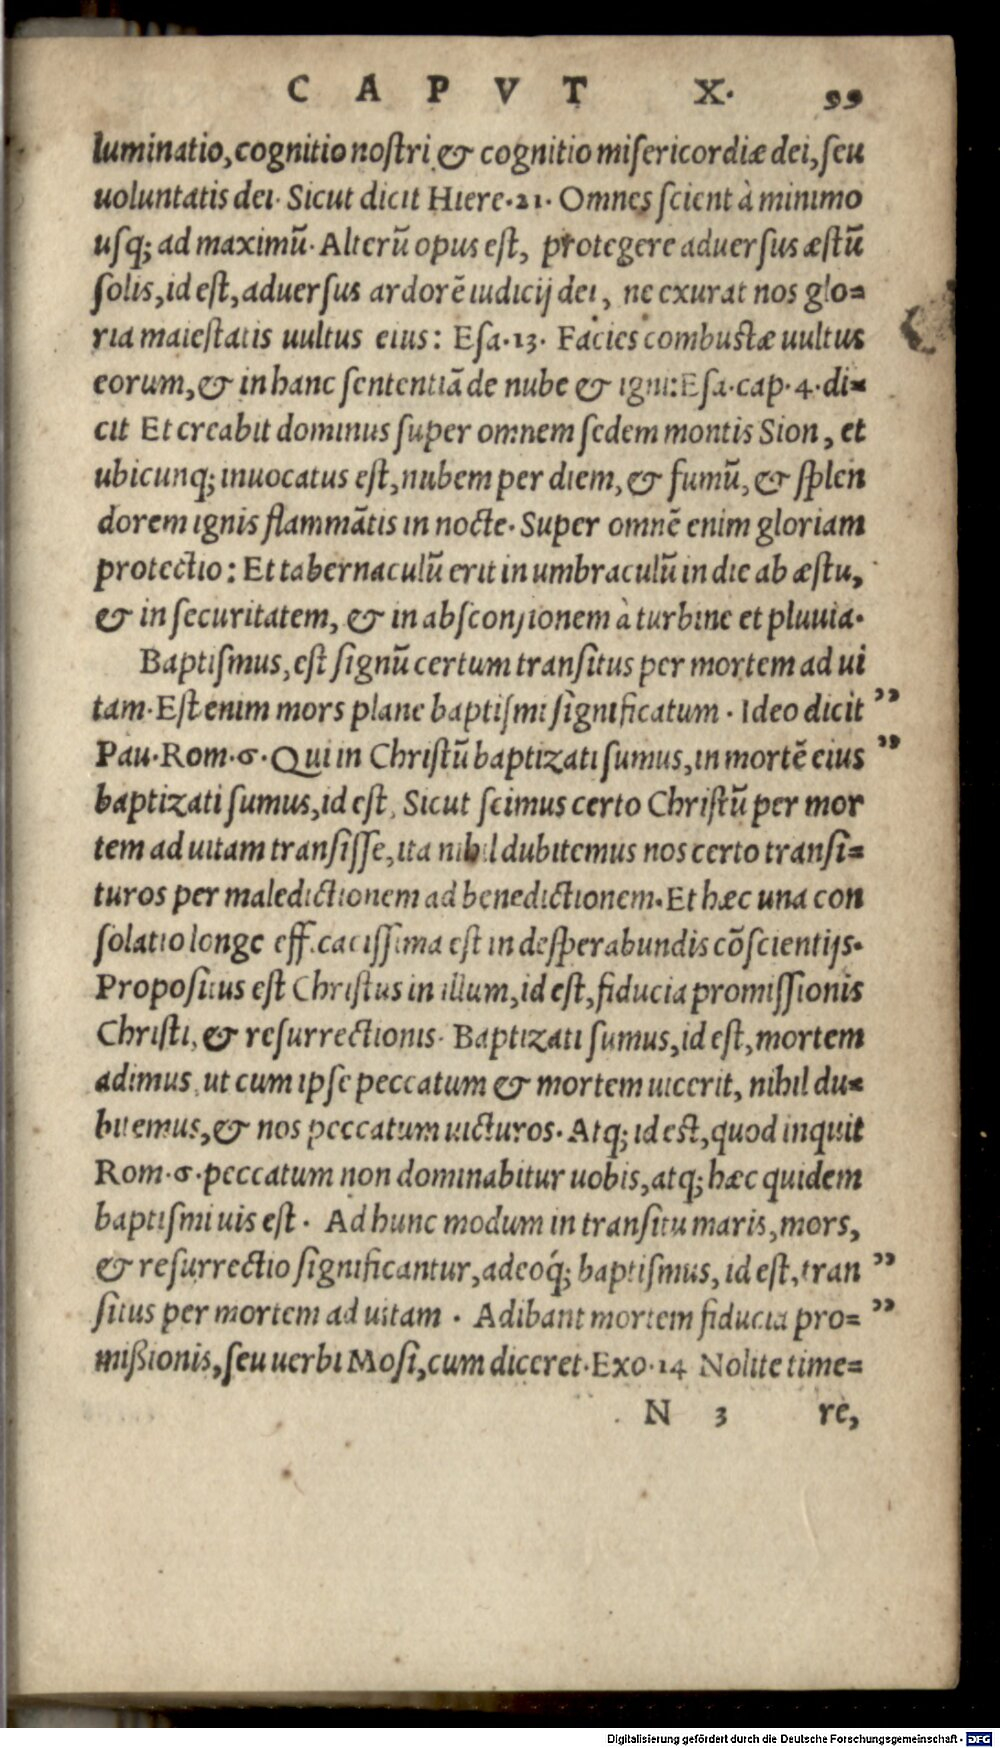 CAPVT X. 99
luminatio, cognitio noſtri & cognitio miſericordiæ dei, ſeu
uoluntatis dei. Sicut dicit Hiere.21. Omnes ſcient à minimo
uſq; ad maximũ. Alterũ opus eſt, protegere aduerſus æſtũ
ſolis, id eſt, aduerſus ardorẽ iudicij dei, ne exurat nos glo=
ria maieſtatis uultus eius: Eſa.13. Facies combuſtæ uultus
eorum, & in hanc ſententiã de nube & igni: Eſa.cap.4.di=
cit Et creabit dominus ſuper omnem ſedem montis Sion, et
ubicunq; inuocatus eſt, nubem per diem, & fumũ, & ſplen
dorem ignis flammãtis in nocte. Super omnẽ enim gloriam
protectio: Et tabernaculũ erit in umbraculũ in die ab æſtu,
& in ſecuritatem, & in abſconſionem à turbine et pluuia.
Baptiſmus, eſt ſignũ certum tranſitus per mortem ad ui
tam. Eſt enim mors plane baptiſmi ſignificatum. Ideo dicit ”
Pau. Rom.6. Qui in Chriſtũ baptizati ſumus, in mortẽ eius ”
baptizati ſumus, id eſt, Sicut ſcimus certo Chriſtũ per mor
tem ad uitam tranſiſſe, ita nihil dubitemus nos certo tranſi=
turos per maledictionem ad benedictionem. Et hæc una con
ſolatio longe efficaciſſima eſt in deſperabundis cõſcientijs.
Propoſitus eſt Chriſtus in illum, id eſt, fiducia promiſſionis
Chriſti, & reſurrectionis. Baptizati ſumus, id eſt, mortem
adimus, ut cum ipſe peccatum & mortem uicerit, nihil du=
bitemus, & nos peccatum uicturos. Atq; id eſt, quod inquit
Rom.6. peccatum non dominabitur uobis, atq; hæc quidem
baptiſmi uis eſt. Ad hunc modum in tranſitu maris, mors,
& reſurrectio ſignificantur, adeoq́; baptiſmus, id eſt, tran ”
ſitus per mortem ad uitam. Adibant mortem fiducia pro= ”
mißionis, ſeu uerbi Moſi, cum diceret. Exo.14 Nolite time=
N 3 re,
Digitalisierung gefördert durch die Deutsche Forschungsgemeinschaft - DFG